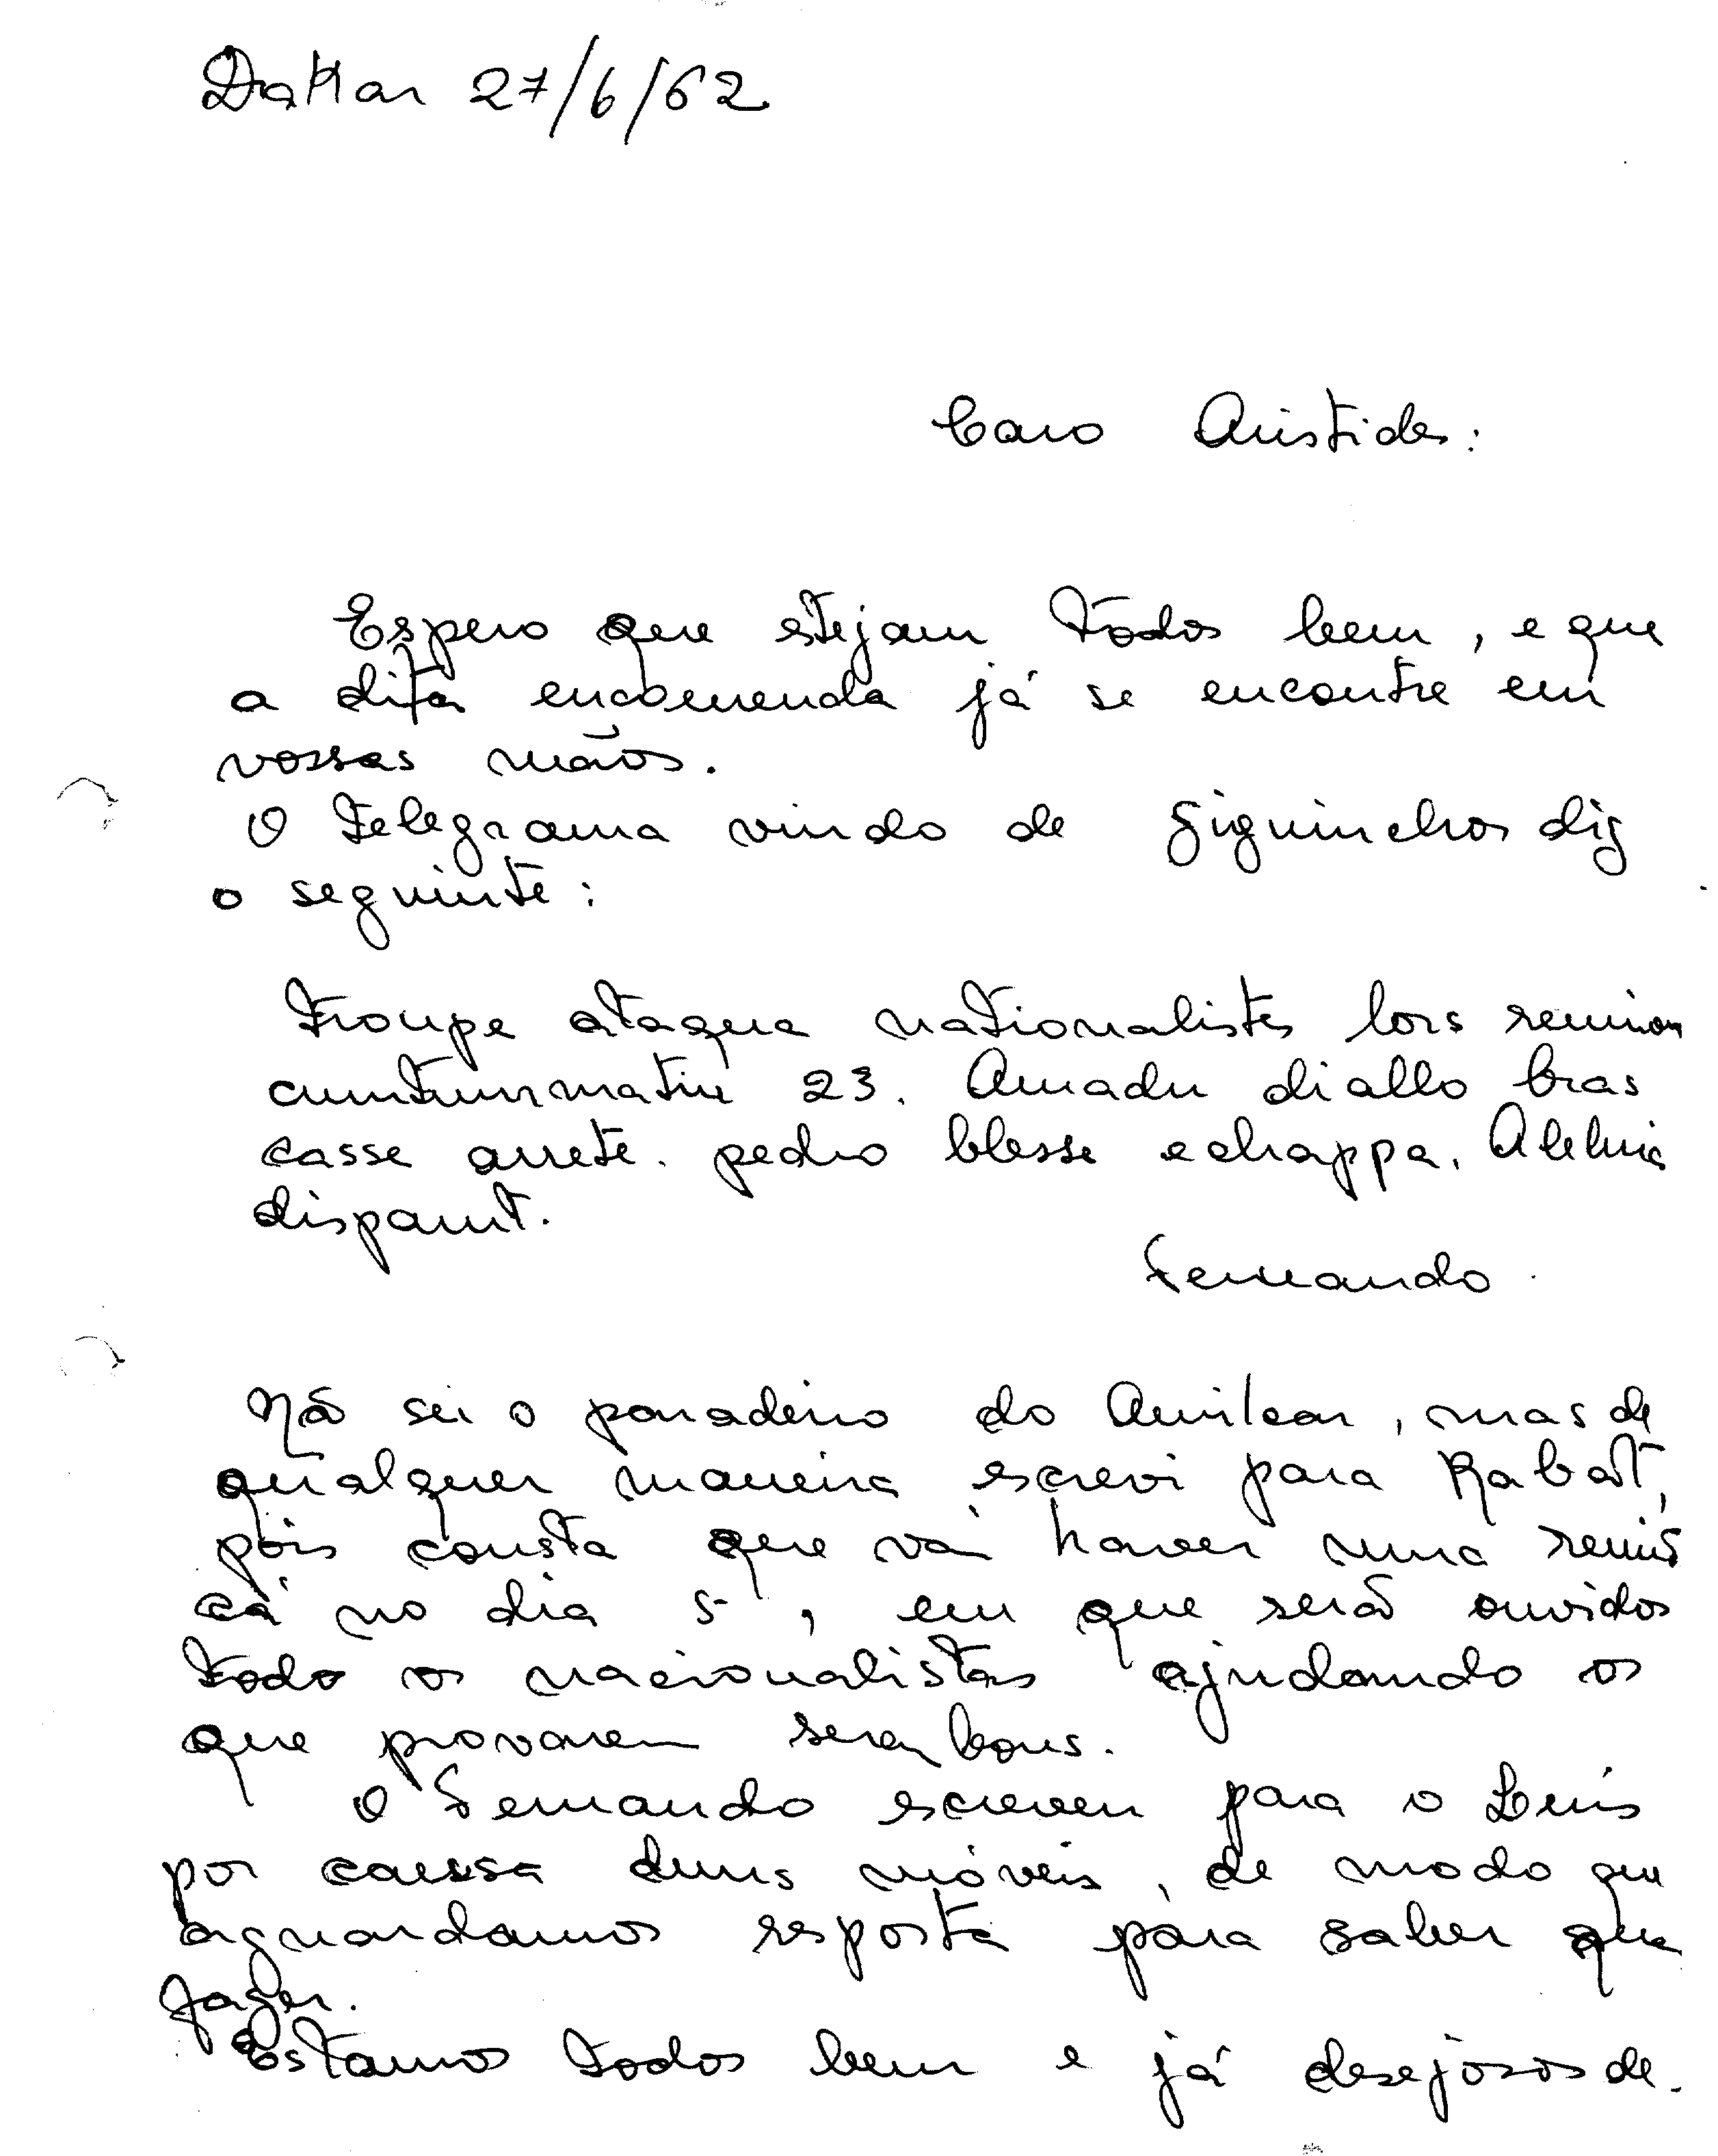 Dakar 27/6/62
Caro Aristides:
Espero que estejam todos bem, e que
a dita encomenda já se encontre em
vossas mãos.
O telegrama vindo de Ziguinchor diz
o seguinte:
Troupe ataqua nationalistes lors reunion
23. Amadu diallo bras
casse arrete. pedro blesse echappa.
disparut.
Fernando.
Não sei o paradeiro do Amilcar, mas de
qualquer maneira escrevi para Rabat,
pois consta que vai haver uma reunião
cá no dia 5, em que serão ouvidos
todo os nacionalistas ajudando os
que provarem serem bons.
O Fernando escreveu para o Luís
por causa duns móveis, de modo que
aguardamos resposta para saber que
fazer.
Estamos todos bem e já desejosos de.